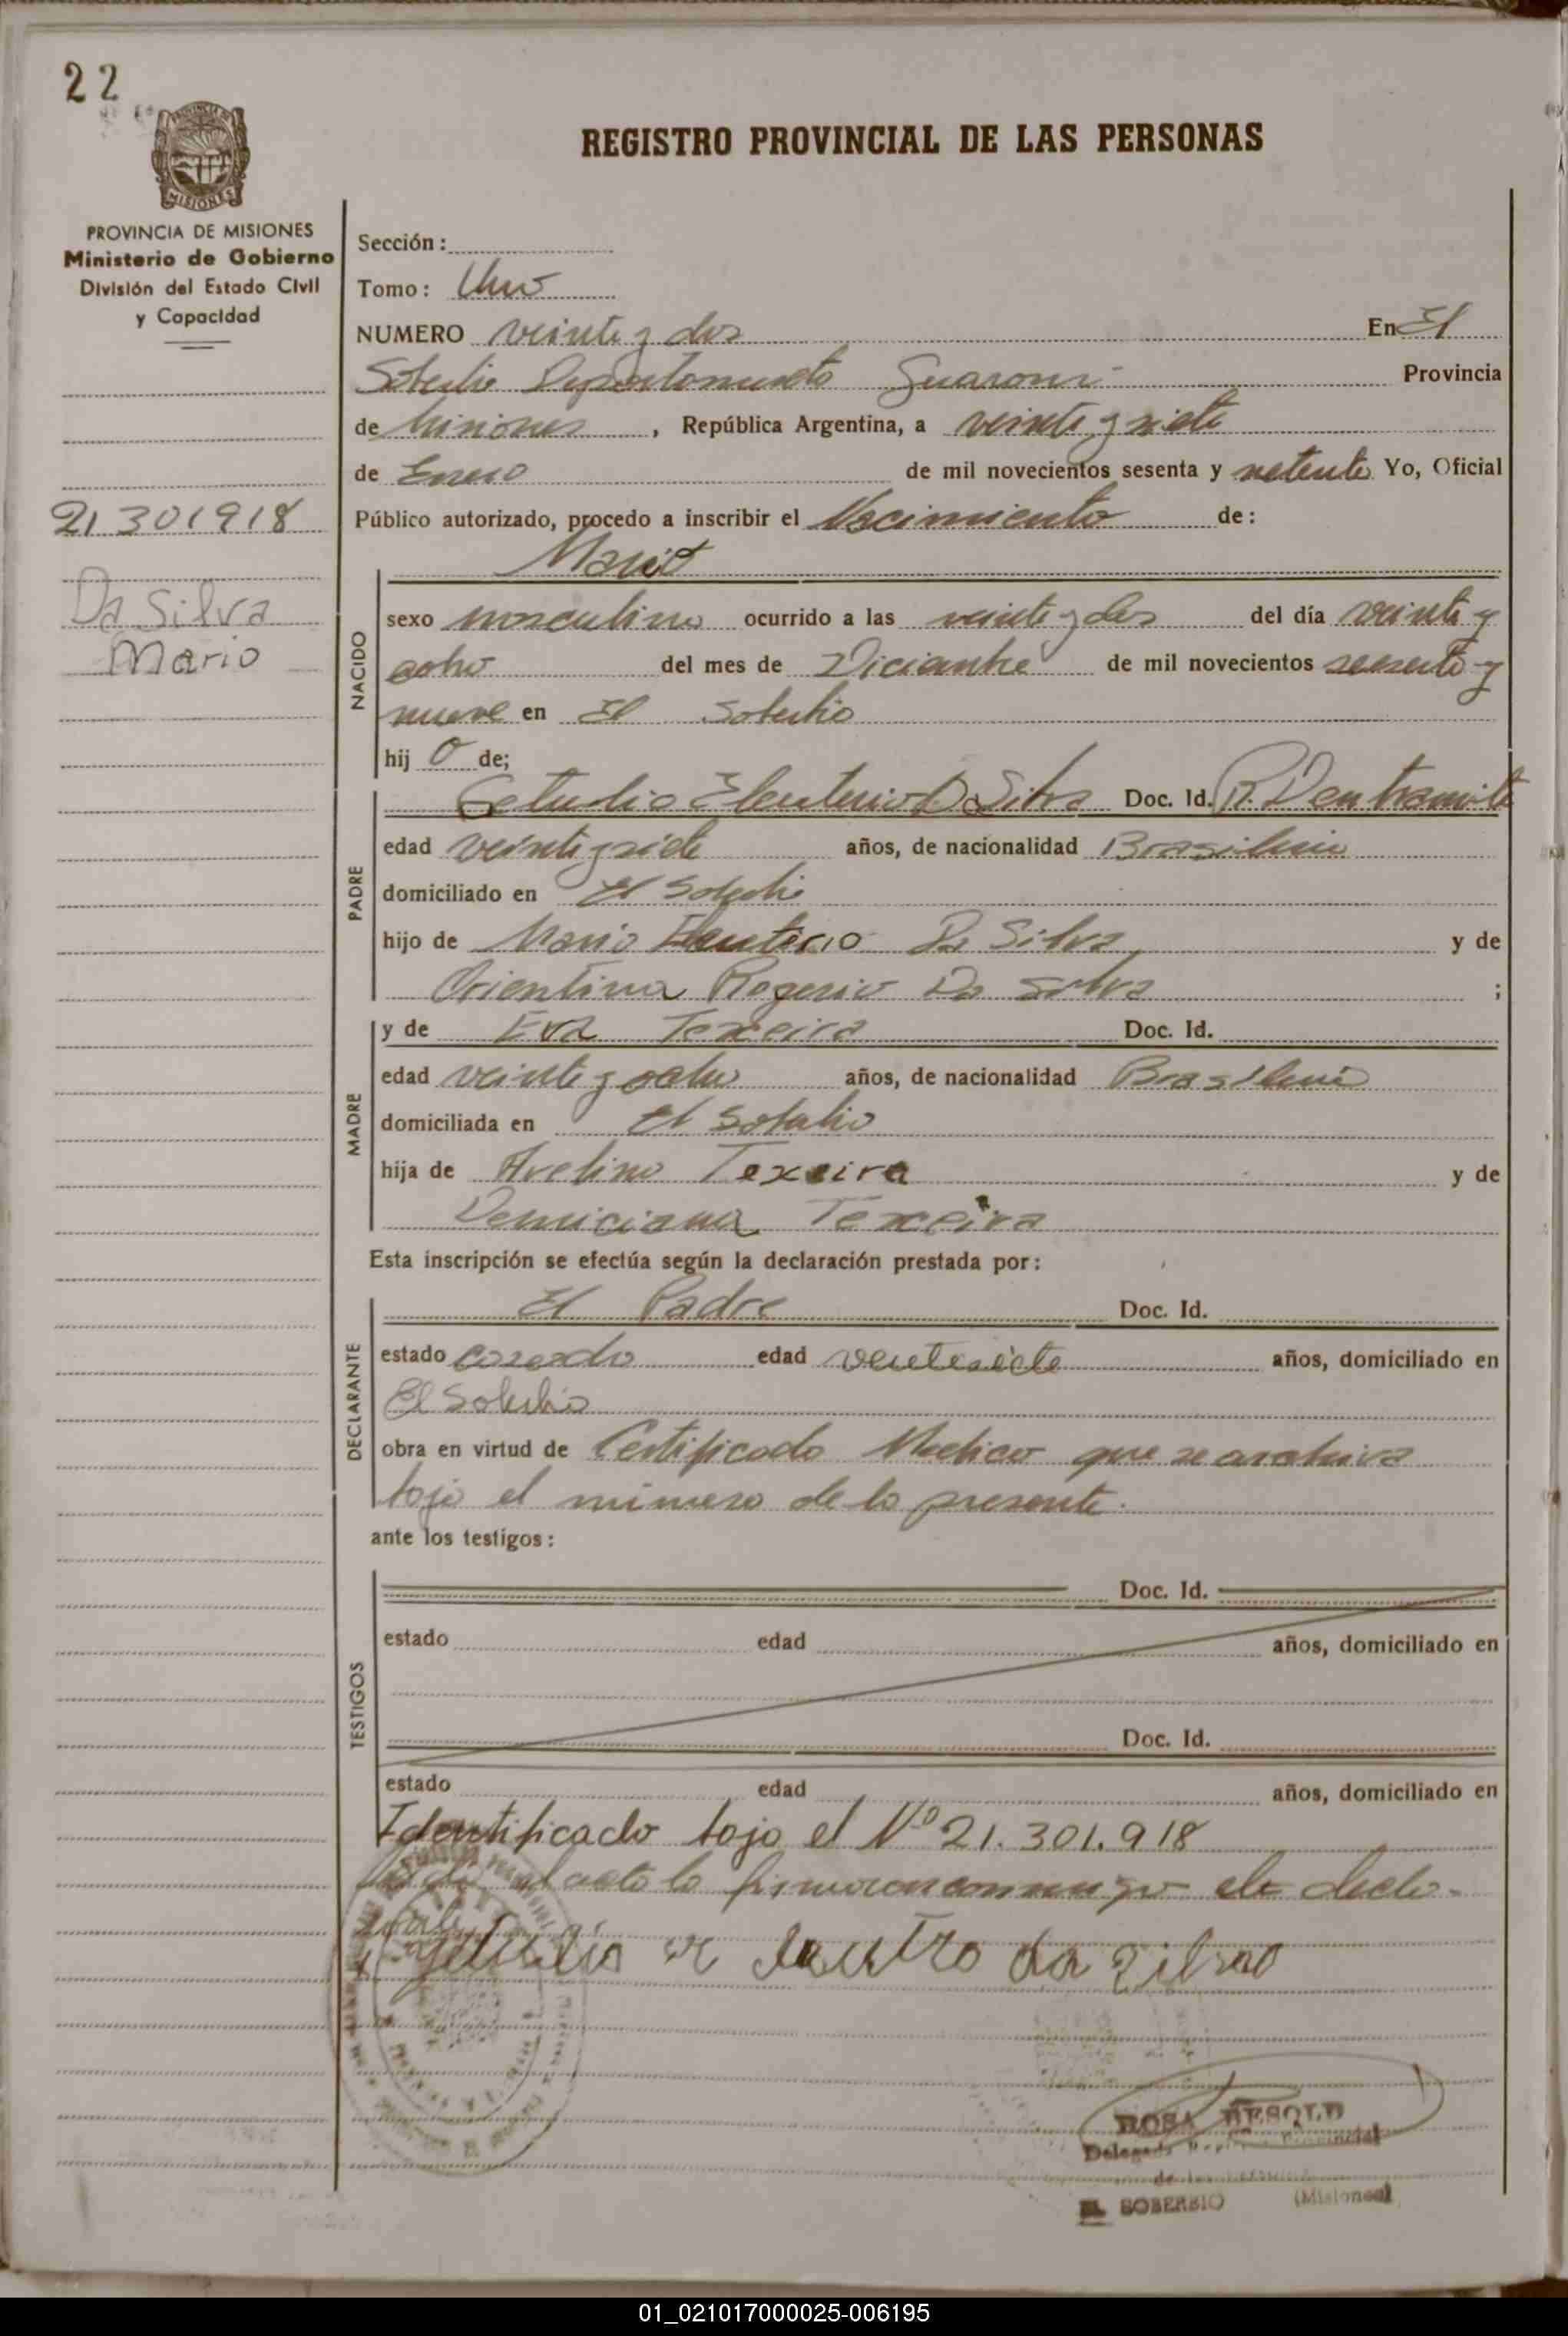 22
PROVINCIA DE MISIONES
Ministerio de Gobierno
División del Estado Civil
y Capacidad
21 301918
Da Silva
Mario
REGISTRO PROVINCIAL DE LAS PERSONAS
Sección:
Tomo: Uno
NUMERO veinte y dos En El
Soberbio Departamento Guarani Provincia
de Misiones, República Argentina, a veinte y siete
de Enero de mil novecientos sesenta y setenta Yo, Oficial
Público autorizado, procedo a inscribir el Nacimiento de:
Mario
NACIDO
sexo masculino ocurrido a las veinte y dos del día veinte y
ocho del mes de Diciembre de mil novecientos sesenta y
nueve en El Soberbio
hij o de;
PADRE
Getulio Eleuterio Da Silva Doc. Id. en tramite
edad veinte y siete años, de nacionalidad Brasilera
domiciliado en El Soberbio
hijo de Mario Eleuterio Da Silva y de
Orientina Rogerio Da Silva ;
MADRE
y de Eva Texeira Doc. Id.
edad veinte y ocho años, de nacionalidad Brasilera
domiciliada en El Soberbio
hija de Avelino Texeira y de
Demiciana Texeira
Esta inscripción se efectúa según la declaración prestada por:
DECLARANTE
El Padre Doc. Id.
estado casado edad veintesiete años, domiciliado en
El Soberbio
obra en virtud de Certificado Medico que se archiva
bajo el número de la presente.
ante los testigos:
TESTIGOS
Doc. Id.
estado edad años, domiciliado en
Doc. Id.
estado edad años, domiciliado en
Identificado bajo el Nº 21.301.918
el acta la firmaron conmigo el decla-
da
ROSA BESOLD
EL SOBERBIO (Misiones)
01_021017000025-006195